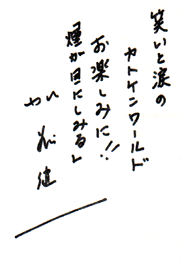 笑いと涙の
カトケンワールド
お楽しみに!!
「煙が目にしみる」
加藤健一